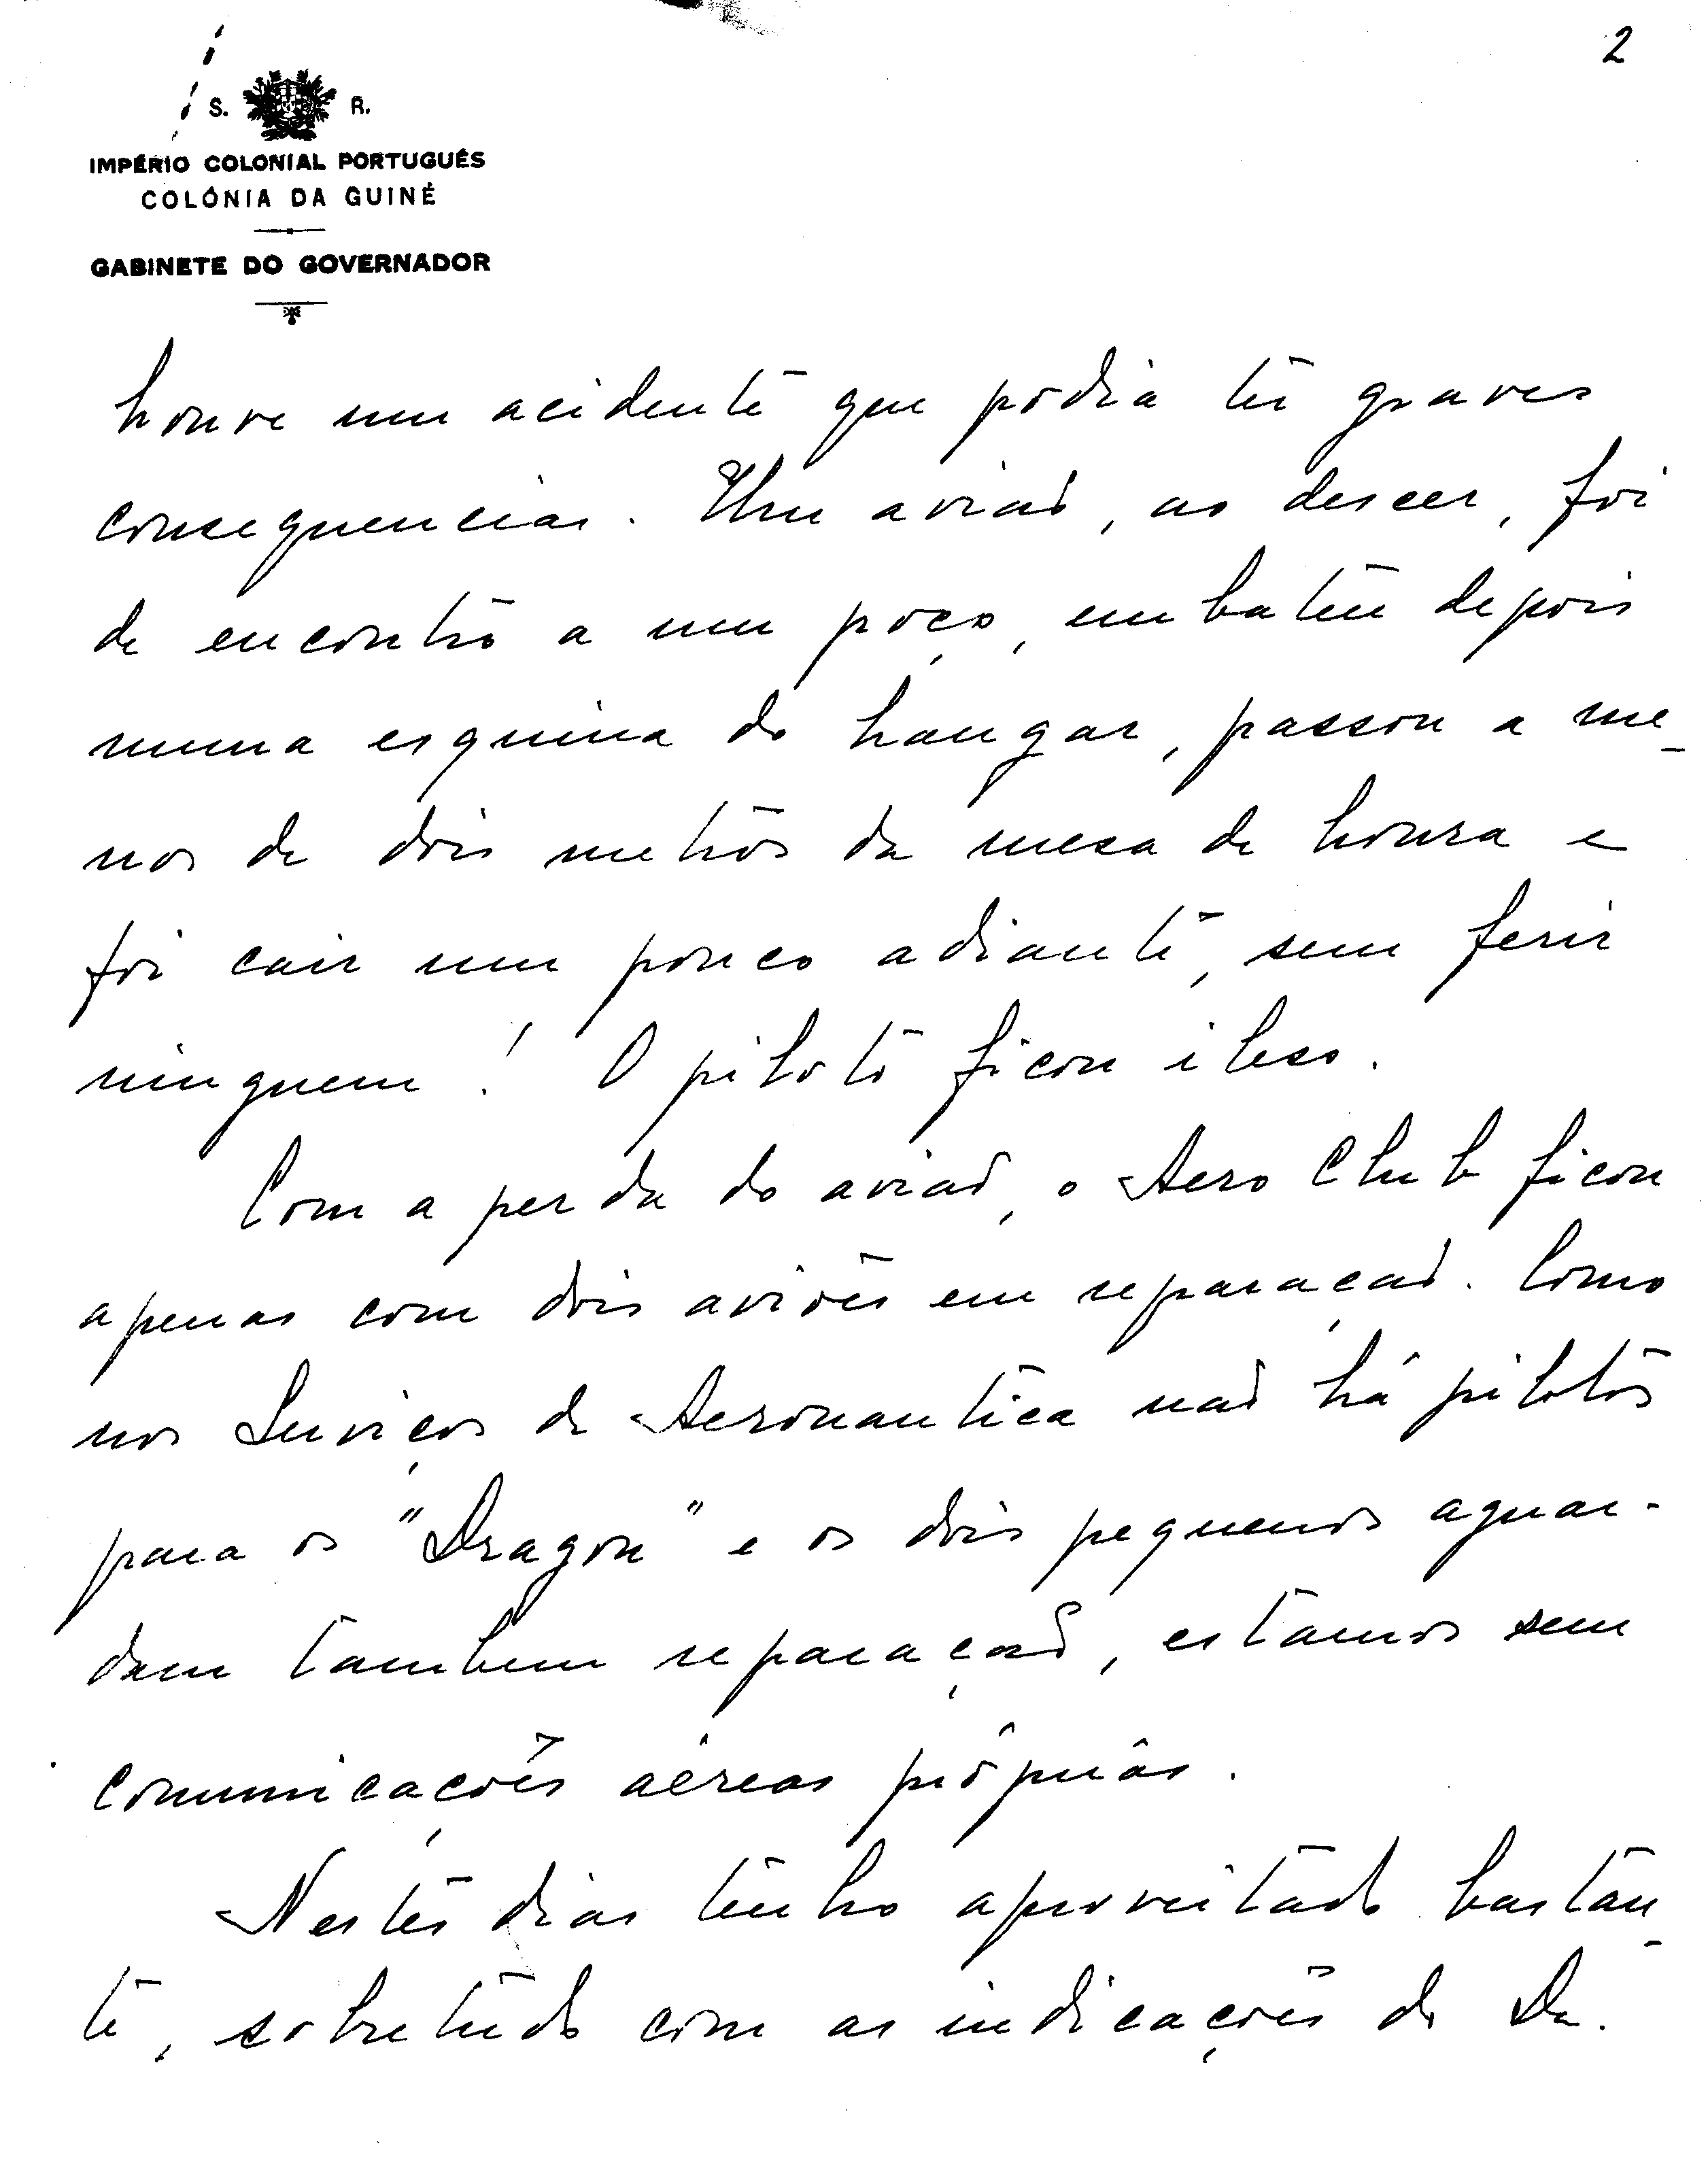 2
S. R.
IMPÉRIO COLONIAL PORTUGUÊS
COLÓNIA DA GUINÉ
GABINETE DO GOVERNADOR
houve um acidente que podia ter graves
consequencias. Um avião, ao descer, foi
de encontro a um poço, embateu depois
numa esquina do hangar, passou a me-
nos de dois metros da mesa de honra e
foi cair um pouco adiante, sem ferir
ninguem! O piloto ficou ileso.
Com a perda do avião, o Aero Club ficou
apenas com dois aviões em reparação. Como
nos Serviços de Aeronautica não há pilotos
para os "Dragon" e os dois pequenos aguar-
dam tambem reparação, estamos sem
comunicações aéreas próprias.
Nestes dias tenho aproveitado bastan-
te, sobretudo com as indicações do Dr.